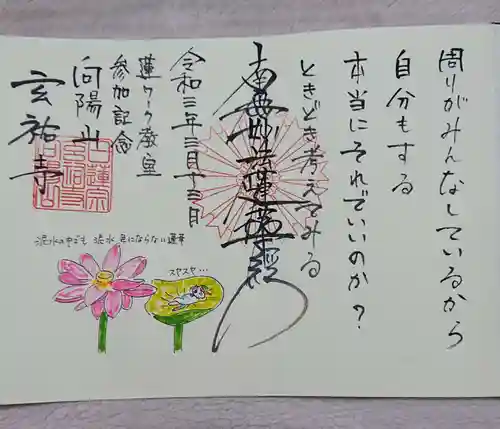 周りがみんなしているから
自分もする
本当にそれでいいのか？
ときどき考えてみる
南無妙法蓮華経
令和三年三月十三日
蓮ワーク教室
参加記念
向陽山
玄祐寺
泥水の中でも 泥水 色にならない蓮華
スヤスヤ…